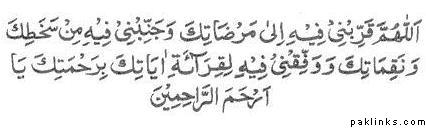 اَللّٰهُمَّ قَرِّبْنِيْ فِيْهِ اِلىٰ مَرْضَاتِكَ وَجَنِّبْنِيْ فِيْهِ مِنْ سَخَطِكَ
وَنَقِمَاتِكَ وَوَفِّقْنِيْ فِيْهِ لِقِرَآئَةِ اٰيَاتِكَ بِرَحْمَتِكَ يَا
اَرْحَمَ الرَّاحِمِيْنَ
paklinks.com